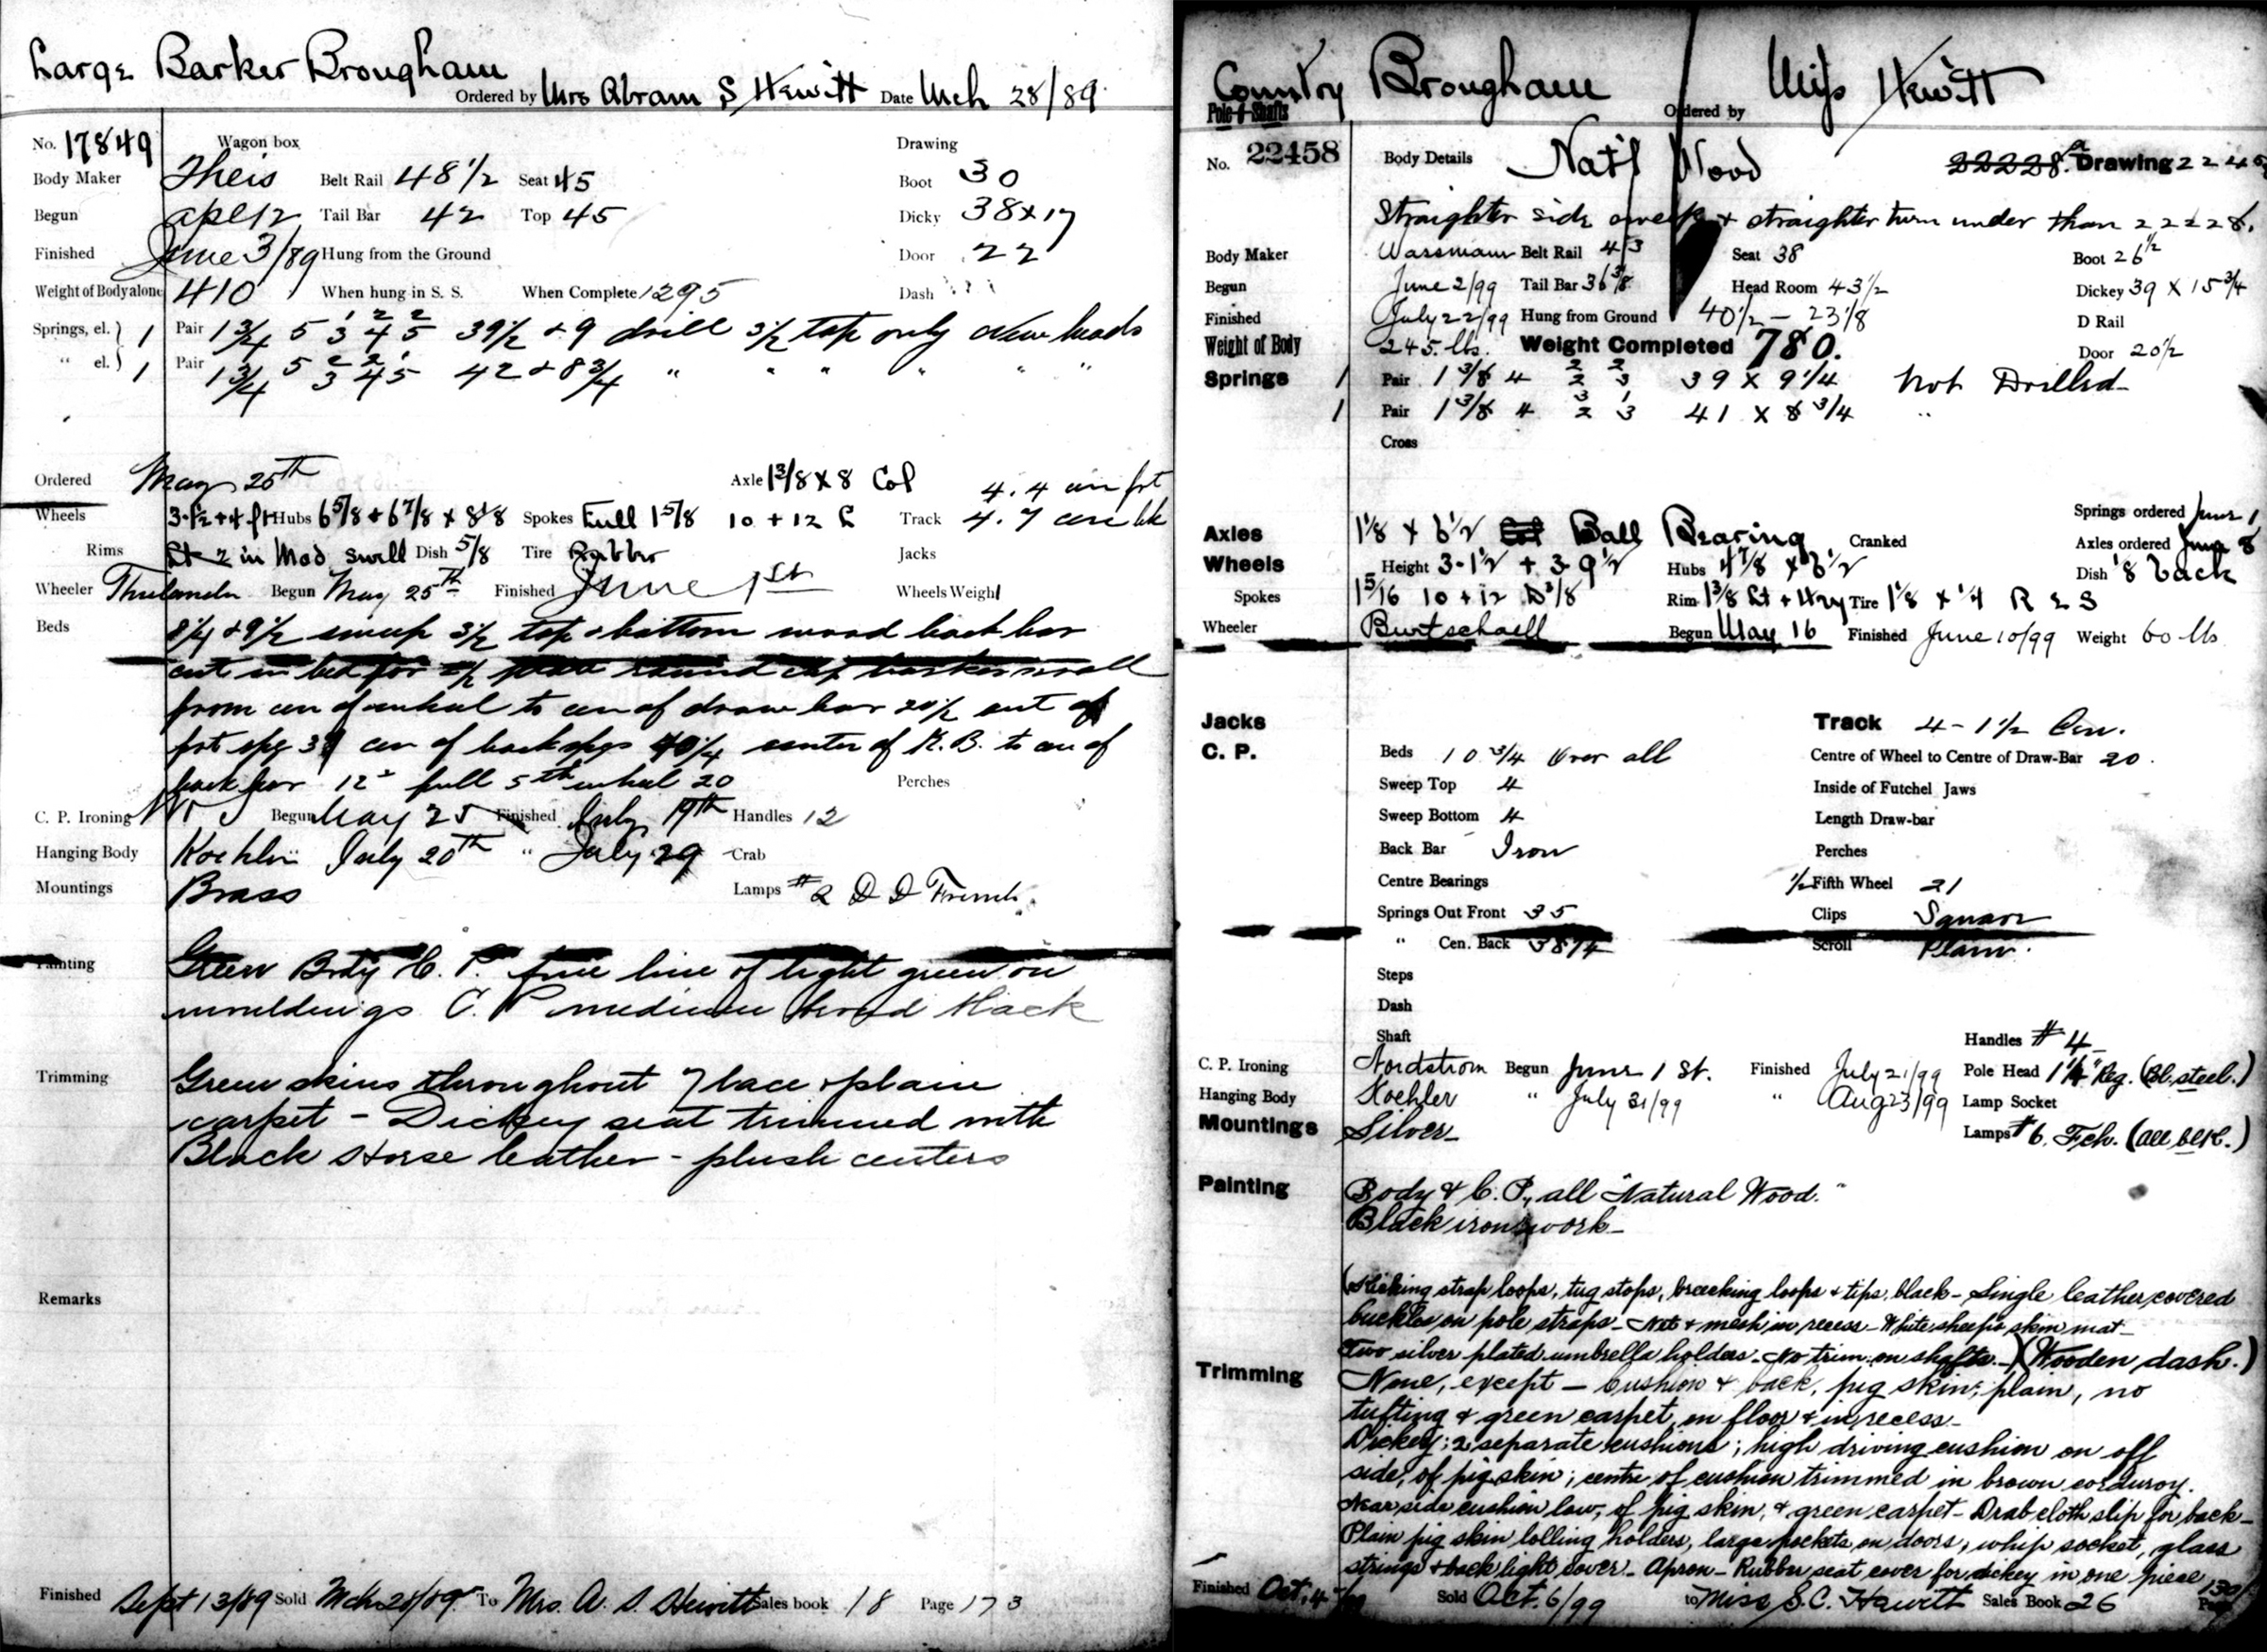 Large Barker Brougham
Ordered by Mrs Abram S Hewitt Date Mch 28/89
No. 17849 Wagon box Drawing
Body Maker Theis Belt Rail 48 1/2 Seat 45 Boot 30
Begun Apl 12 Tail Bar 42 Top 45 Dicky 38 x 17
Finished June 3/89 Hung from the Ground Door 22
Weight of Body alone 410 When hung in S. S. When Complete 1295 Dash
Springs, el. } 1 Pair 1 3/4 5 1/3 2/4 2/5 39 1/2 + 9 drill 3 1/2 top only New heads
" el. } 1 Pair 1 3/4 5 2/3 2/4 1/5 42 + 8 3/4 " " " " " "
Ordered May 25th Axle 1 3/8 x 8 Col 4.4 cen frt
Wheels 3-1/2 + 4 ft Hubs 6 5/8 + 6 7/8 x 8 1/8 Spokes Full 1 5/8 10 + 12 Track 4.7 cen bk
Rims St 2 in Mod swell Dish 5/8 Tire Rubber Jacks
Wheeler Begun May 25th Finished June 1st Wheels Weight
Beds 8 1/4 + 9 1/2 sweep 3 1/2 top + bottom wood back bar
cut in bed for round
from cen of wheel to cen of draw bar 20 1/2 out of
frt spg 39 cen of back spgs 40 1/4 center of K. B. to cen of
back bar 12 full 5th wheel 20 Perches
C. P. Ironing Begun May 25 Finished July 19th Handles 12
Hanging Body Koehler July 20th " July 29 Crab
Mountings Brass Lamps #2 D D French
Painting Green Body C. P. fine line of light green on
mouldings C. P medium broad black
Trimming Green skins throughout 7 lace + plain
carpet - Dickey seat trimmed with
Black Horse leather - plush centers
Remarks
Finished Sept 13/89 Sold Mch 28/89 To Mrs. A. S. Hewitt Sales book 18 Page 173
Country Brougham Miss Hewitt
Pole & Shafts Ordered by
No. 22458 Body Details Nat'l Wood 22228. Drawing
Straighter side sweep + straighter turn under than 22228.
Body Maker Wassmann Belt Rail 43 Seat 38 Boot 26 1/2
Begun June 2/99 Tail Bar 36 3/8 Head Room 43 1/2 Dickey 39 x 15 3/4
Finished July 22/99 Hung from Ground 40 1/2 - 23 1/8 D Rail
Weight of Body 245 lbs. Weight Completed 780. Door 20 1/2
Springs 1 Pair 1 3/8 4 2/2 2/3 39 x 9 1/4 Not Drilled
1 Pair 1 3/8 4 3/2 1/3 41 x 8 3/4 "
Cross
Springs ordered June 1
Axles 1 1/8 x 6 1/2 Col Ball Bearing Cranked Axles ordered June 8
Wheels Height 3-1 1/2 + 3-9 1/2 Hubs 4 7/8 x 6 1/2 Dish 1/8 back
Spokes 1 5/16 10 + 12 D 3/8 Rim 1 3/8 St + Hvy Tire 1 1/8 x 1/4 R & S
Wheeler Burtschaell Begun May 16 Finished June 10/99 Weight 60 lbs
Jacks Track 4 - 1 1/2 Cen.
C. P. Beds 10 3/4 Over all Centre of Wheel to Centre of Draw-Bar 20.
Sweep Top 4 Inside of Futchel Jaws
Sweep Bottom 4 Length Draw-bar
Back Bar Iron Perches
Centre Bearings 1/2 Fifth Wheel 21
Springs Out Front 35 Clips Square
" Cen. Back 38 1/4 Scroll Plain.
Steps
Dash
Shaft Handles #4
C. P. Ironing Nordstrom Begun June 1 St. Finished July 21/99 Pole Head 1 1/4" Reg. (Bl. steel.)
Hanging Body Koehler " July 31/99 " Aug 23/99 Lamp Socket
Mountings Silver Lamps #6. Fch. (all blk.)
Painting Body & C. P., all "Natural Wood."
Black iron work
(Kicking strap loops, tug stops, breeching loops + tips, black - Single leather covered
buckles on pole straps - Net + mesh in recess - White sheep skin mat -
Two silver plated umbrella holders - No trim on shafts - ) (Wooden dash.)
Trimming None, except - Cushion & back, pig skin, plain, no
tufting & green carpet on floor & in recess -
Dickey; 2 separate cushions; high driving cushion on off
side, of pig skin; centre of cushion trimmed in brown corduroy.
Near side cushion low, of pig skin, & green carpet - Drab cloth slip for back -
Plain pig skin lolling holders, large pockets on doors, whip socket, glass
strings & back light cover - Apron - Rubber seat cover for dickey in one piece
Finished Oct. 4 Sold Oct. 6/99 to Miss S. C. Hewitt Sales Book 26 Page 130